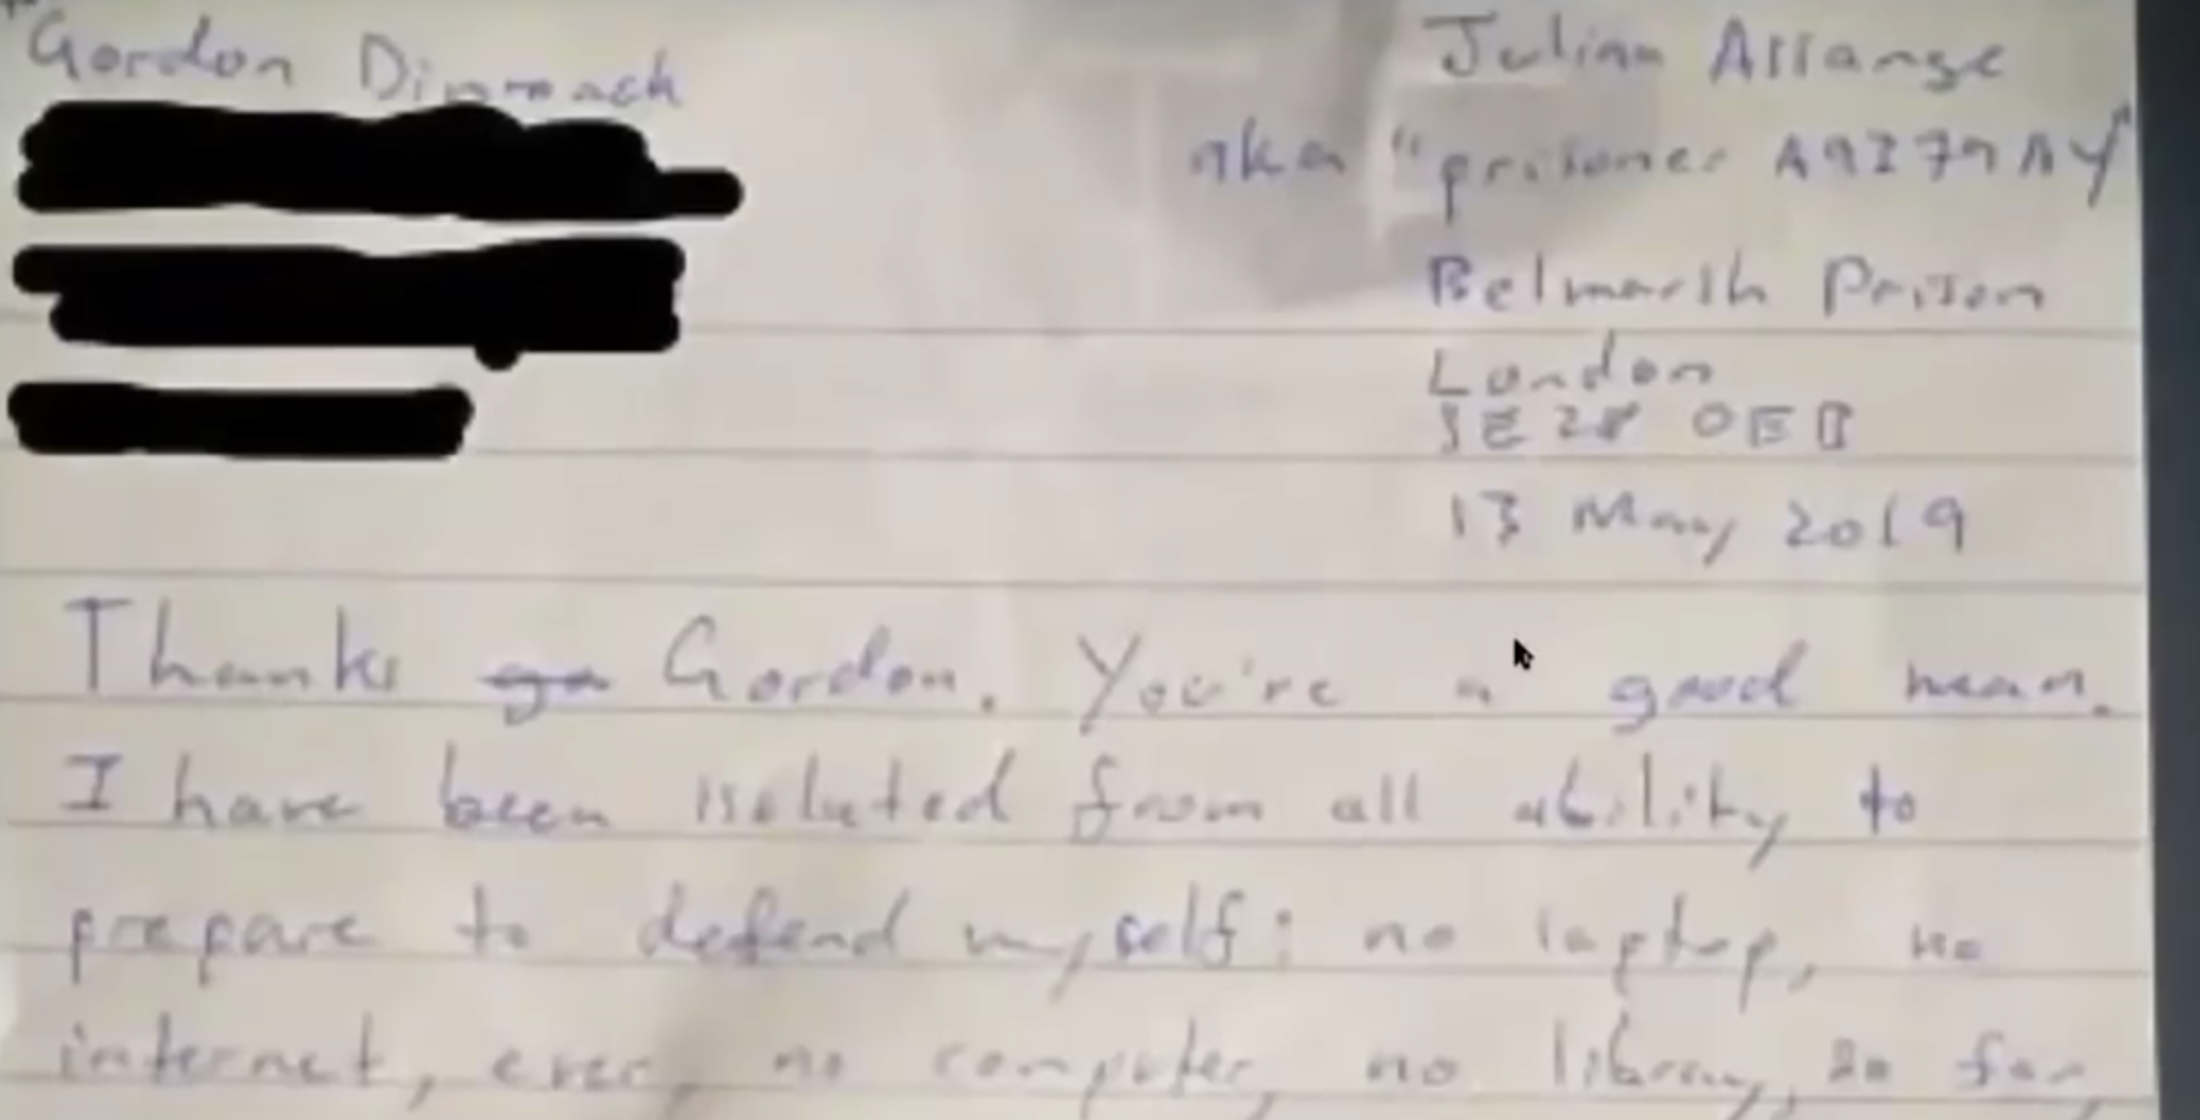 Gordon Dimmack
Julian Assange
aka "prisoner A9379AY"
Belmarsh Prison
London
SE28 0EB
13 May 2019
Thanks go Gordon. You're a good man.
I have been isolated from all ability to
prepare to defend myself: no laptop, no
internet, ever, no computer, no library, so far